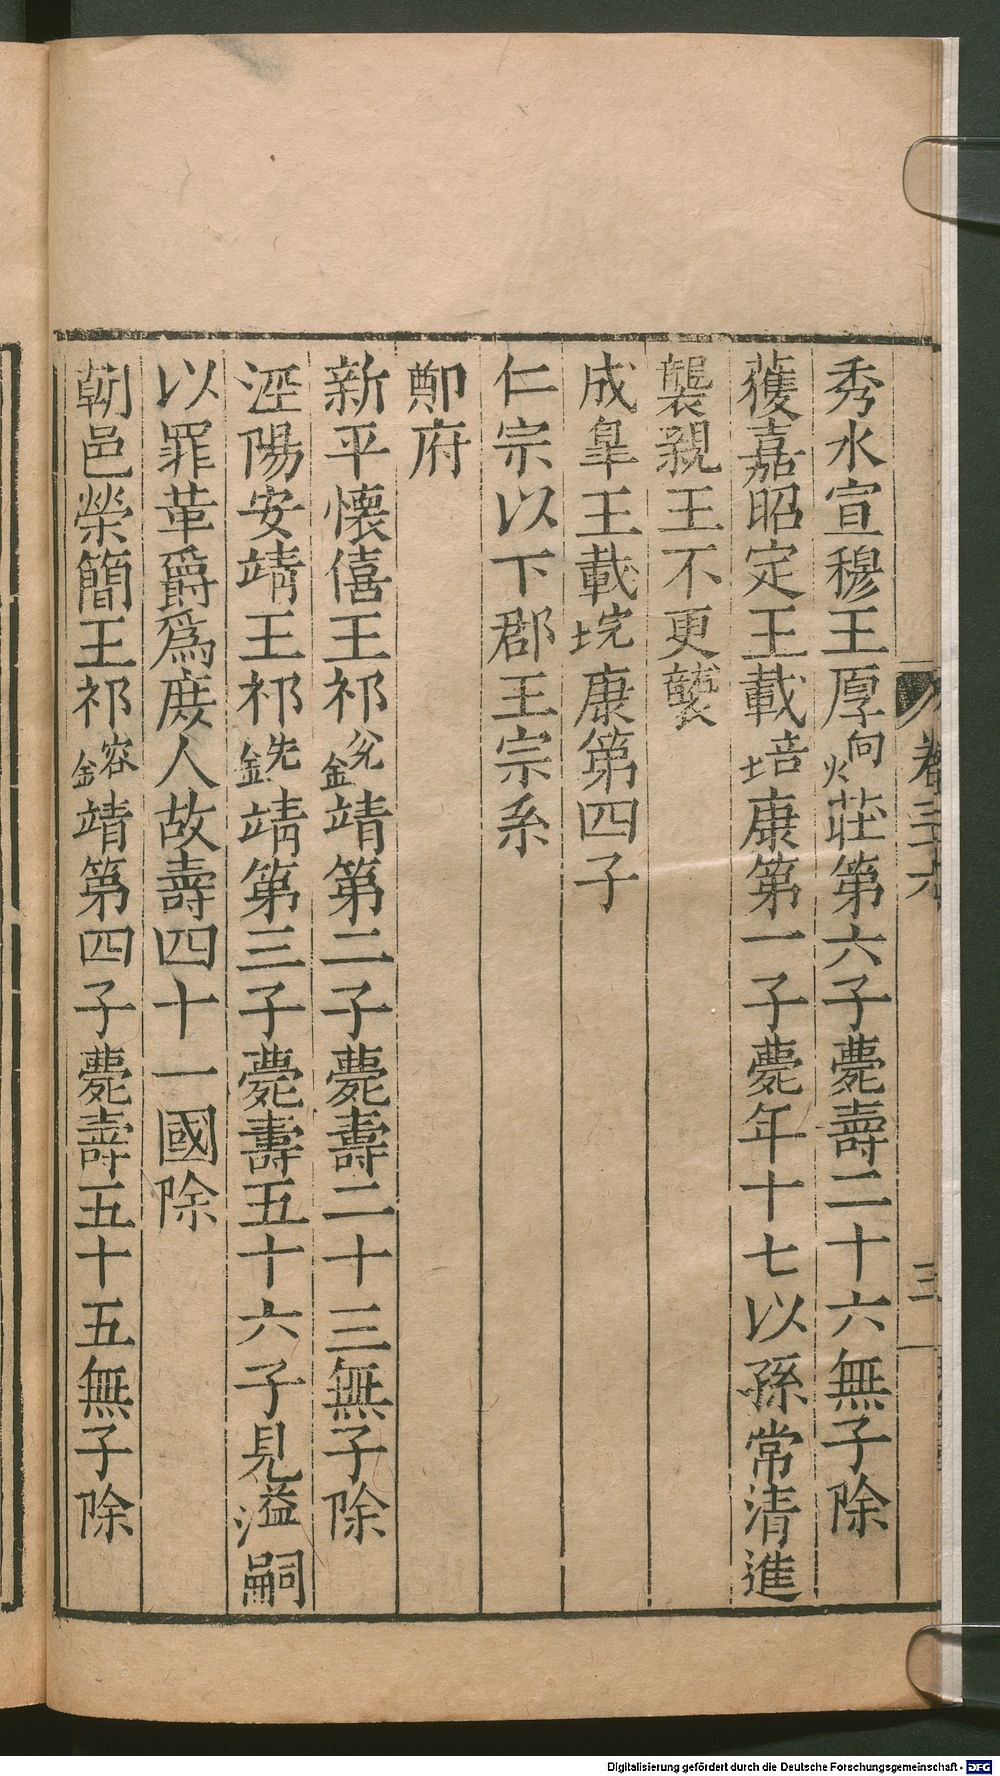 卷三十六
三
秀水宣穆王厚炯莊第六子薨壽二十六無子除
獲嘉昭定王載培康第一子薨年十七以孫常清進
襲親王不更襲
成臯王載垸康第四子
仁宗以下郡王宗系
鄭府
新平懷僖王祁銳靖第二子薨壽二十三無子除
涇陽安靖王祁銑靖第三子薨壽五十六子見溢嗣
以罪革爵爲庻人故壽四十一國除
朝邑榮簡王祁鎔靖第四子薨壽五十五無子除
Digitalisierung gefördert durch die Deutsche Forschungsgemeinschaft - DFG